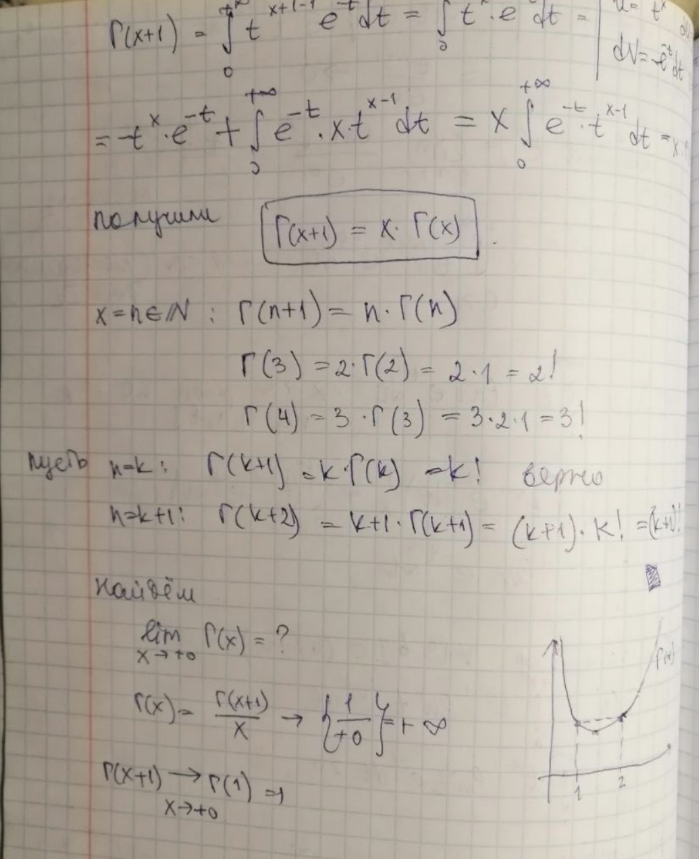 Γ(x+1) = ∫₀^{+∞} t^{x+1-1} e^{-t} dt = ∫₀ t^x · e^{-t} dt = | u = t^x
dV = e^{-t} dt
= -t^x · e^{-t} + ∫₀^{+∞} e^{-t} · x · t^{x-1} dt = x ∫₀^{+∞} e^{-t} · t^{x-1} dt = x
получили Γ(x+1) = x · Γ(x) .
x = n ∈ ℕ : Γ(n+1) = n · Γ(n)
Γ(3) = 2 · Γ(2) = 2 · 1 = 2!
Γ(4) = 3 · Γ(3) = 3 · 2 · 1 = 3!
пусть n=k : Γ(k+1) = k · Γ(k) = k! верно
n=k+1 : Γ(k+2) = k+1 · Γ(k+1) = (k+1) · k! = (k+1)!
найдём
lim_{x→+0} Γ(x) = ?
Γ(x) = Γ(x+1)/x → {1/+0} = +∞
Γ(x+1) →_{x→+0} Γ(1) = 1
Γ(x)
1 2